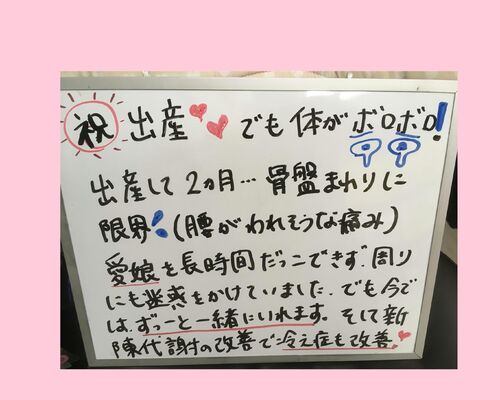 祝 出産 でも 体が ボロボロ!
出産して 2ヵ月… 骨盤まわりに
限界! (腰がわれそうな痛み)
愛娘を長時間だっこできず、周り
にも迷惑をかけていました。でも今で
は、ずっーと一緒にいれます。そして新
陳代謝の改善で冷え症も改善